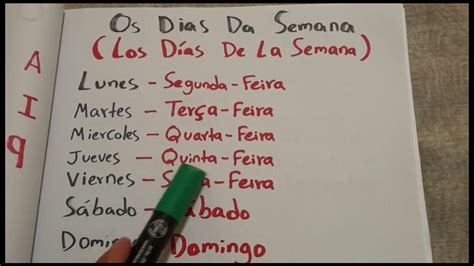 Os Dias Da Semana
(Los Días De La Semana)
Lunes – Segunda-Feira
Martes – Terça-Feira
Miercoles – Quarta-Feira
Jueves – Quinta-Feira
Viernes – -Feira
Sábado –
Domingo
A
I
9